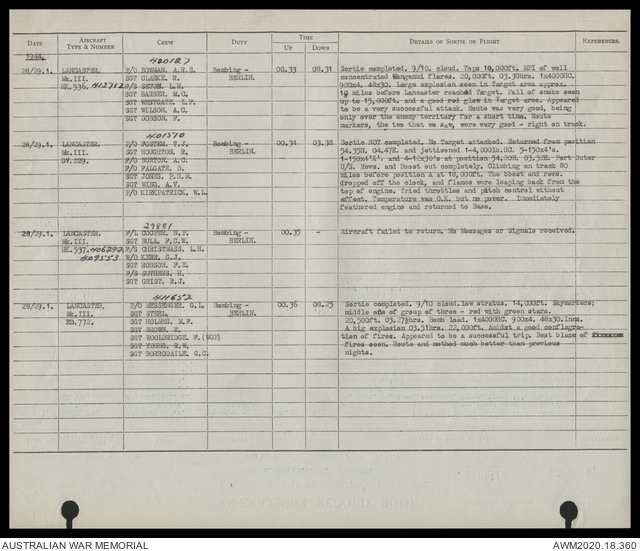 DATE AIRCRAFT TYPE & NUMBER CREW DUTY TIME UP DOWN DETAILS OF SORTIE OR FLIGHT REFERENCES.
1944.
420127
28/29.1. LANCASTER. P/O BOWMAN. A.R.S. Bombing - 00.33 08.31 Sortie completed. 9/10. cloud. Tops 10,000ft. MPI of well
Mk.III. SGT CLARKE, R. BERLIN. concentrated Wanganui flares. 20,000ft. 03.30hrs. 1x4000HC.
412712 F/S L.R. 900x4. 48x30. Large explosion seen in Target area approx.
SGT BARBER, M.C. 10 miles before Lancaster reached Target. Pall of smoke seen
SGT WESTGATE, L.F. up to 15,000ft. and a good red glow in Target area. Appeared
SGT WILSON, A.C. to be a very successful attack. Route was very good, being
SGT DOBSON, F. only over the enemy territory for a short time. Route
markers, the two that we saw, were very good - right on track.
401510
28/29.1. LANCASTER. P/O FOSTER, T.J. Bombing - 00.34 03.38 Sortie NOT completed. No Target attacked. Returned from position
Mk.III. SGT HOUGHTON, R. BERLIN. 54.35N. 04.47E. and jettisoned 1-4,000lb.HC. 5-150x4's.
DV.229. F/O BURTON, A.C. 1-150x4'X' and 4-12x30's at position 54.20N. 03.32E. Port Outer
P/O FALGATE, D. U/S. Revs. and Boost cut completely. Climbing on track 80
SGT JONES, P.H.M. miles before position A at 18,000ft. The boost and revs.
SGT WING, A.V. dropped off the clock, and flames were leaping back from the
P/O KIRKPATRICK, W.L. top of engine. Tried throttles and pitch control without
effect. Temperature was O.K. but no power. Immediately
feathered engine and returned to Base.
29881
28/29.1. LANCASTER. F/L COOPER, N.P. Bombing - 00.35 - Aircraft failed to return. No Messages or Signals received.
Mk.III. SGT BULL, F.C.W. BERLIN.
537. 406292 F/S CHRISTMASS, L.H.
409553 W/O KERR, G.J.
SGT ROBSON, F.E.
F/S SUTHERS, H.
SGT GRIST, R.J.
411652
28/29.1. LANCASTER. P/O MESSENGER, G.L. Bombing - 00.36 08.25 Sortie completed, 9/10 cloud.low stratus. 14,000ft. Skymarkers;
Mk.III. SGT STEEL, BERLIN. middle one of group of three - red with green stars.
ED.772. SGT HOLMES, M.F. 20,500ft. 03.27½hrs. Bomb load. 1x4000HC. 900x4. 48x30.Incs.
SGT BROWN, K. A big explosion 03.31hrs. 22,000ft. Amidst a good conflagra-
SGT WOOLDRIDGE, F.(WOP) tion of fires. Appeared to be a successful trip. Best blaze of
SGT YOUNG, R.W. fires seen. Route and method much better than previous
SGT BORRODAILE, G.C. nights.
AUSTRALIAN WAR MEMORIAL AWM2020.18.360